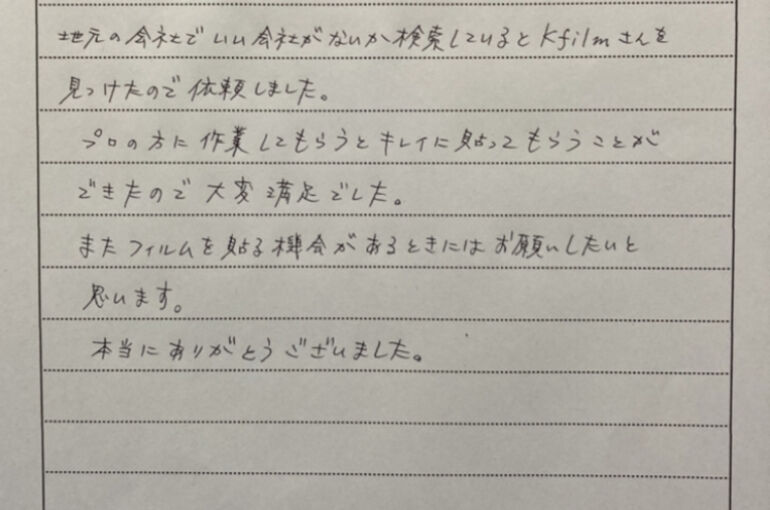 地元の会社でいい会社がないか検索しているとKfilmさんを
見つけたので依頼しました。
プロの方に作業してもらうとキレイに貼ってもらうことが
できたので大変満足でした。
またフィルムを貼る機会があるときにはお願いしたいと
思います。
本当にありがとうございました。